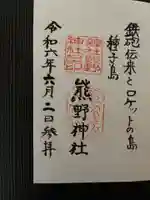 鉄砲伝来とロケットの島
種子島
熊野神社
令和六年六月二日参拝